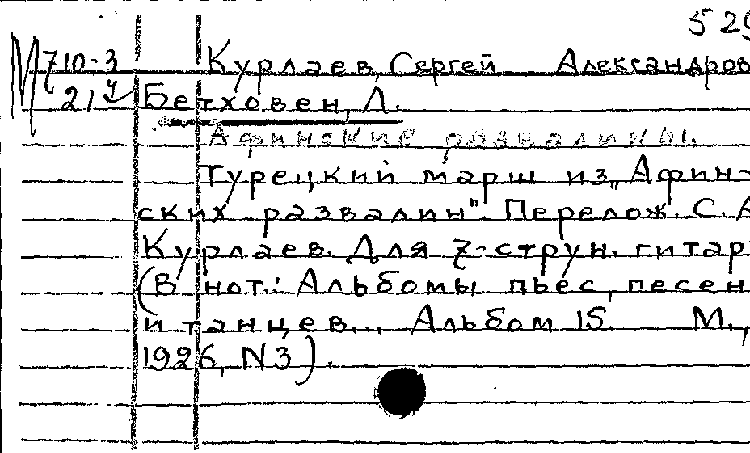 529
М 710-3 Курлаев, Сергей Александров
21 Бетховен, Л.
Афинские развалины.
Турецкий марш из „Афин-
ских развалин". Перелож. С. А
Курлаев. Для 7-струн. гитар
(В нот.: Альбомы пьес, песен
и танцев... Альбом 15. М.,
1926, N3).